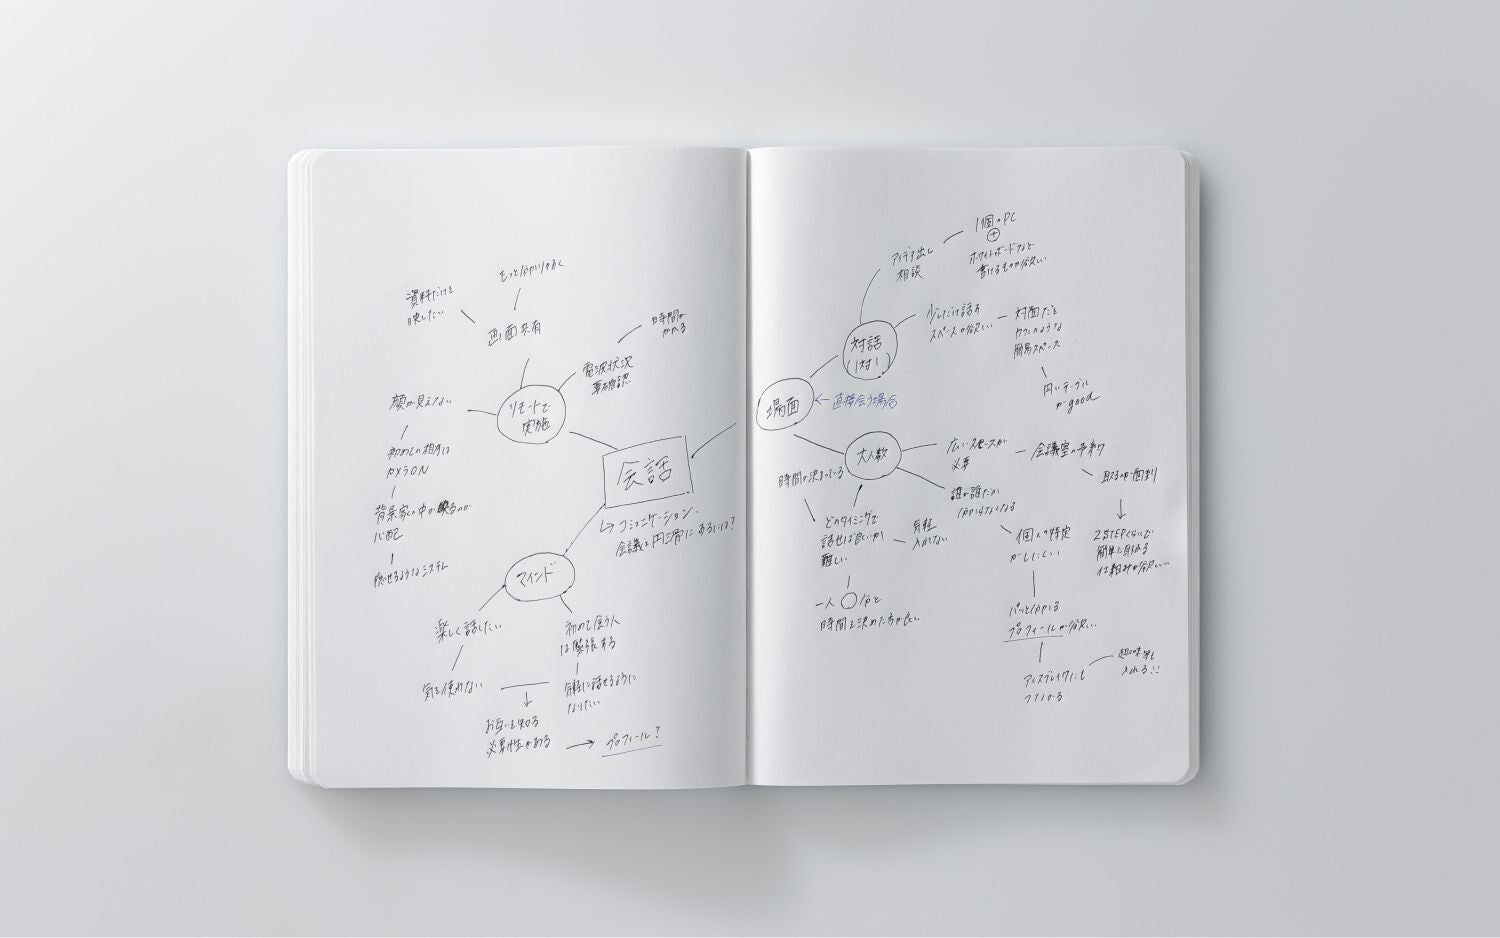 もっと分かりやすく
資料だけを
映したい
画面共有
時間が
かかる
電波状況
要確認
リモートで
実施
顔が見えない
初めての相手は
カメラON
背景家の中が映るのが
心配
隠せるようなシステム
会話
↳ コミュニケーション、
会議を円滑にするには?
マインド
楽しく話したい
気を使わない
初めて会う人
は緊張する
気軽に話せるように
なりたい
お互いを知る
必要性がある
→ プロフィール?
場面
← 直接会う場合
対話
(1対1)
アイデア出し
相談
1個のPC
⊕
ホワイトボードなど
書けるものが欲しい
少しだけ話す
スペースが欲しい
対面だと
カフェのような
簡易スペース
円いテーブル
がgood
大人数
広いスペースが
必要
会議室の予約
取るのが面倒
2STEPくらいで
簡単に取れる
仕組みが欲しい
誰が誰だか
分からなくなる
個人の特定
がしにくい
パッと分かる
プロフィールが欲しい
アイスブレイクにも
つながる
趣味等も
入れる!!
時間が決まっている
どのタイミングで
話せば良いか
難しい
気軽
入れない
一人 ◯ 分と
時間を決めた方が良い